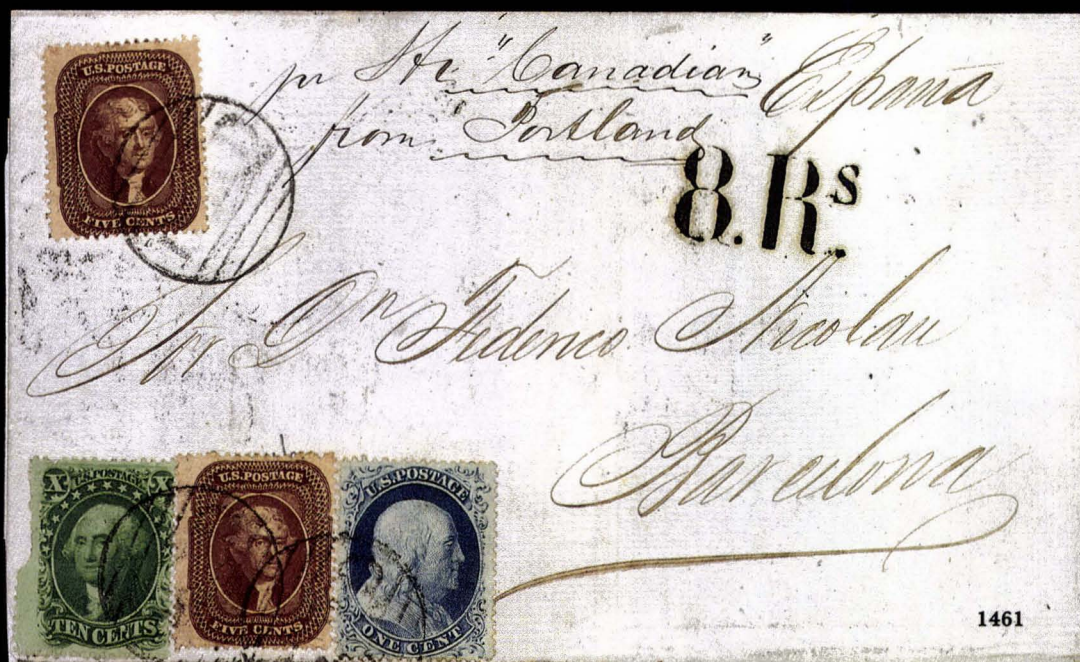 U.S. POSTAGE
FIVE CENTS
pr Str "Canadian"
from Portland
España
8. Rs.
Sor Dn Federico Nicolau
Barcelona
X U.S. POSTAGE X
TEN CENTS
U.S. POSTAGE
FIVE CENTS
U.S. POSTAGE
ONE CENT
1461